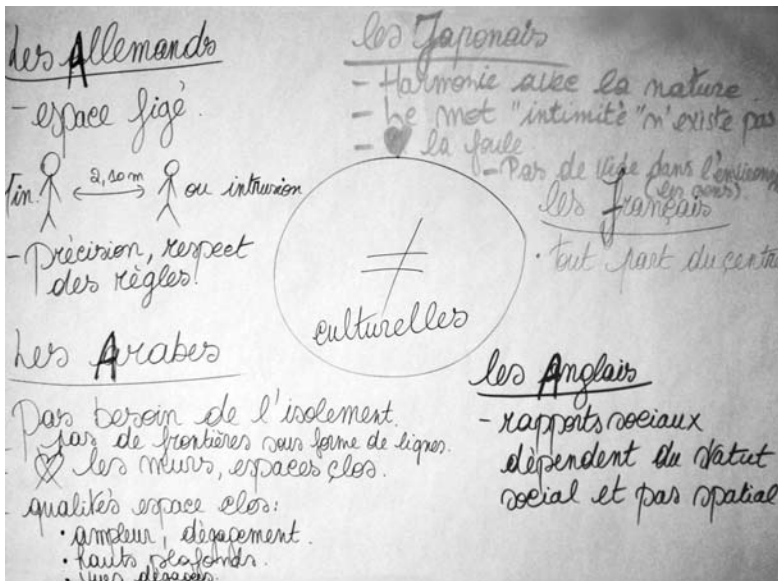 Les Allemands
- espace figé.
2,10m
ou intrusion
- Précision, respect
des règles!
les Japonais
- Harmonie avec la nature
- Le mot "intimité" n'existe pas
- la foule
- Pas de vide dans l'environ
(les gens).
les français
• tout part du centr
≠
culturelles
Les Arabes
Pas besoin de l'isolement.
- pas de frontières sous forme de lignes.
- ♡ les murs, espaces clos.
- qualités espace clos:
• ampleur, dégagement.
• hauts plafonds.
• vues dégagées.
les Anglais
- rapports sociaux
dépendent du statut
social et pas spatial